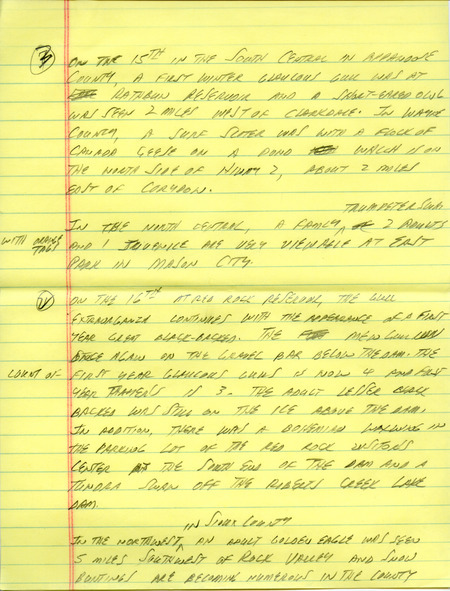 3
ON THE 15TH IN THE SOUTH CENTRAL IN APPANOOSE
COUNTY, A FIRST WINTER GLAUCOUS GULL WAS AT
RATHBUN RESERVOIR AND A SHORT-EARED OWL
WAS SEEN 2 MILES WEST OF CLARKDALE. IN WAYNE
COUNTY, A SURF SCOTER WAS WITH A FLOCK OF
CANADA GEESE ON A POND WHICH IS ON
THE NORTH SIDE OF HIWAY 2, ABOUT 2 MILES
EAST OF CORYDON.
TRUMPETER SWAN
IN THE NORTH CENTRAL, A FAMILY 2 ADULTS
WITH ORANGE TAGS
AND 1 JUVENILE ARE VERY VIEWABLE AT EAST
PARK IN MASON CITY.
ON THE 16TH AT RED ROCK RESERVOIR, THE GULL
EXTRAVAGANZA CONTINUES WITH THE APPEARANCE OF A FIRST
YEAR GREAT BLACK-BACKED. THE MEW GULL WAS
ONCE AGAIN ON THE GRAVEL BAR BELOW THE DAM. THE
COUNT OF
FIRST YEAR GLAUCOUS GULLS IS NOW 4 AND FIRST
YEAR THAYER'S IS 3. THE ADULT LESSER BLACK
BACKED WAS STILL ON THE ICE ABOVE THE DAM.
IN ADDITION, THERE WAS A BOHEMIAN WAXWING IN
THE PARKING LOT OF THE RED ROCK VISITORS
CENTER AT THE SOUTH END OF THE DAM AND A
TUNDRA SWAN OFF THE ROBERTS CREEK LAKE
DAM.
IN SIOUX COUNTY
IN THE NORTHWEST, AN ADULT GOLDEN EAGLE WAS SEEN
5 MILES SOUTHWEST OF ROCK VALLEY AND SNOW
BUNTINGS ARE BECOMING NUMEROUS IN THE COUNTY